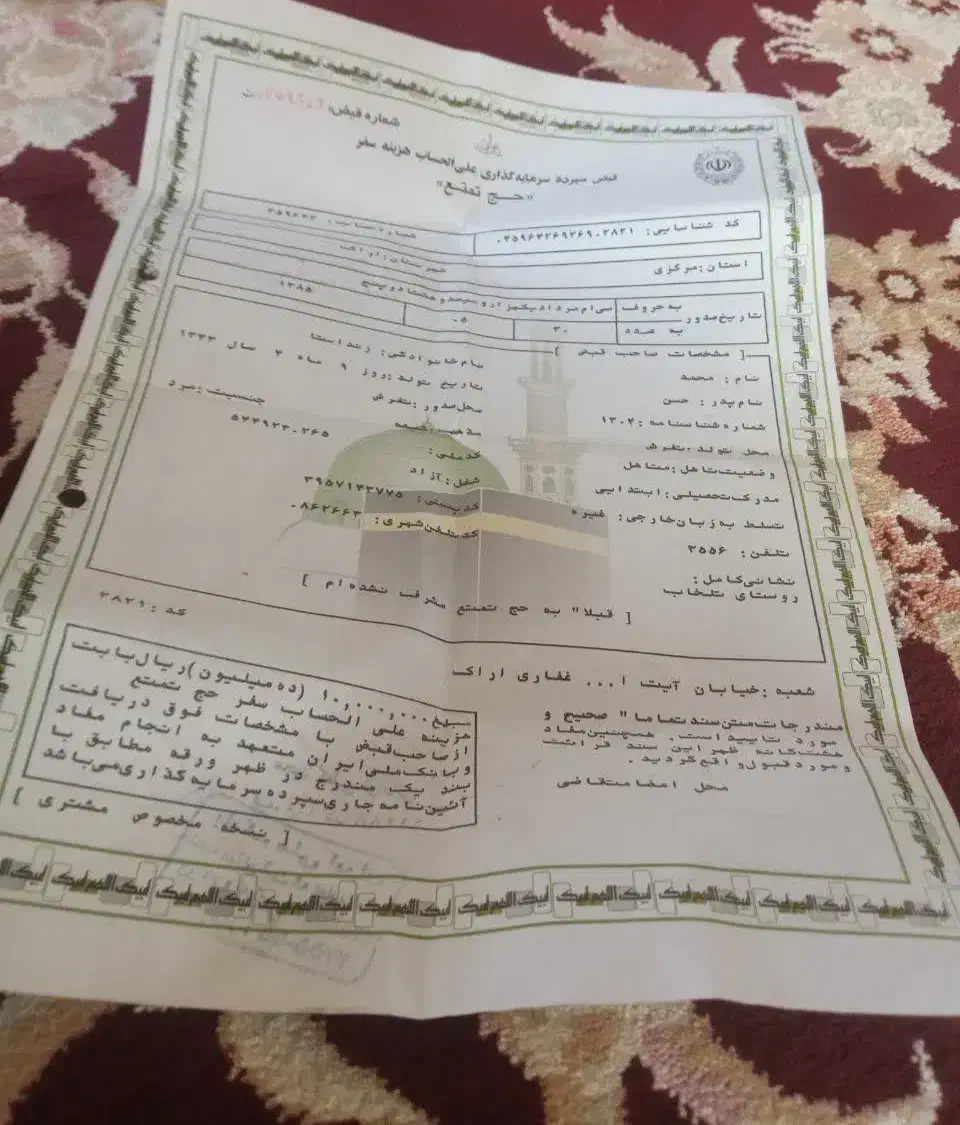 شماره قبض:
قبض سپرده سرمایه‌گذاری علی‌الحساب هزینه سفر
«حج تمتع»
کد شناسایی: ۰۳۵۹۶۳۲۶۹۲۶۹۰۲۸۲۱ شماره حساب: ۳۵۹۶۳۳
استان: مرکزی شهرستان: اراک
تاریخ صدور به حروف سی ام مرداد یکهزار و سیصد و هشتاد و پنج
به عدد ۳۰ ۰۵ ۱۳۸۵
[ مشخصات صاحب قبض ]
نام: محمد نام خانوادگی: زنداستا
نام پدر: حسن تاریخ تولد: روز ۹ ماه ۴ سال ۱۳۳۳
شماره شناسنامه: ۱۳۰۲ محل صدور: تفرش
محل تولد: تفرش مذهب: شیعه جنسیت: مرد
وضعیت تاهل: متاهل کد ملی: ۵۷۳۹۲۳۰۲۶۵
مدرک تحصیلی: ابتدایی شغل: آزاد
تسلط به زبان خارجی: غیره کد پستی: ۳۹۵۷۱۴۳۷۷۵
تلفن: ۳۵۵۶ کد تلفن شهری: ۰۸۶۲۶۶۳
نشانی کامل:
روستای تلخاب
[ قبلا" به حج تمتع مشرف نشده ام ]
کد: ۲۸۲۱
شعبه: خیابان آیت ا... غفاری اراک
مندرجات متن سند تماما" صحیح و
مورد تایید است. همچنین مفاد
هشتگانه ظهر این سند قرائت
و مورد قبول واقع گردید.
محل امضا متقاضی
مبلغ ۱۰,۰۰۰,۰۰۰ (ده میلیون) ریال بابت
هزینه علی الحساب سفر حج تمتع
از صاحب قبض با مشخصات فوق دریافت
و بانک ملی ایران متعهد به انجام مفاد
بند یک مندرج در ظهر ورقه مطابق با
آئین نامه جاری سپرده سرمایه گذاری می باشد
[ نسخه مخصوص مشتری ]
لبیک اللهم لبیک